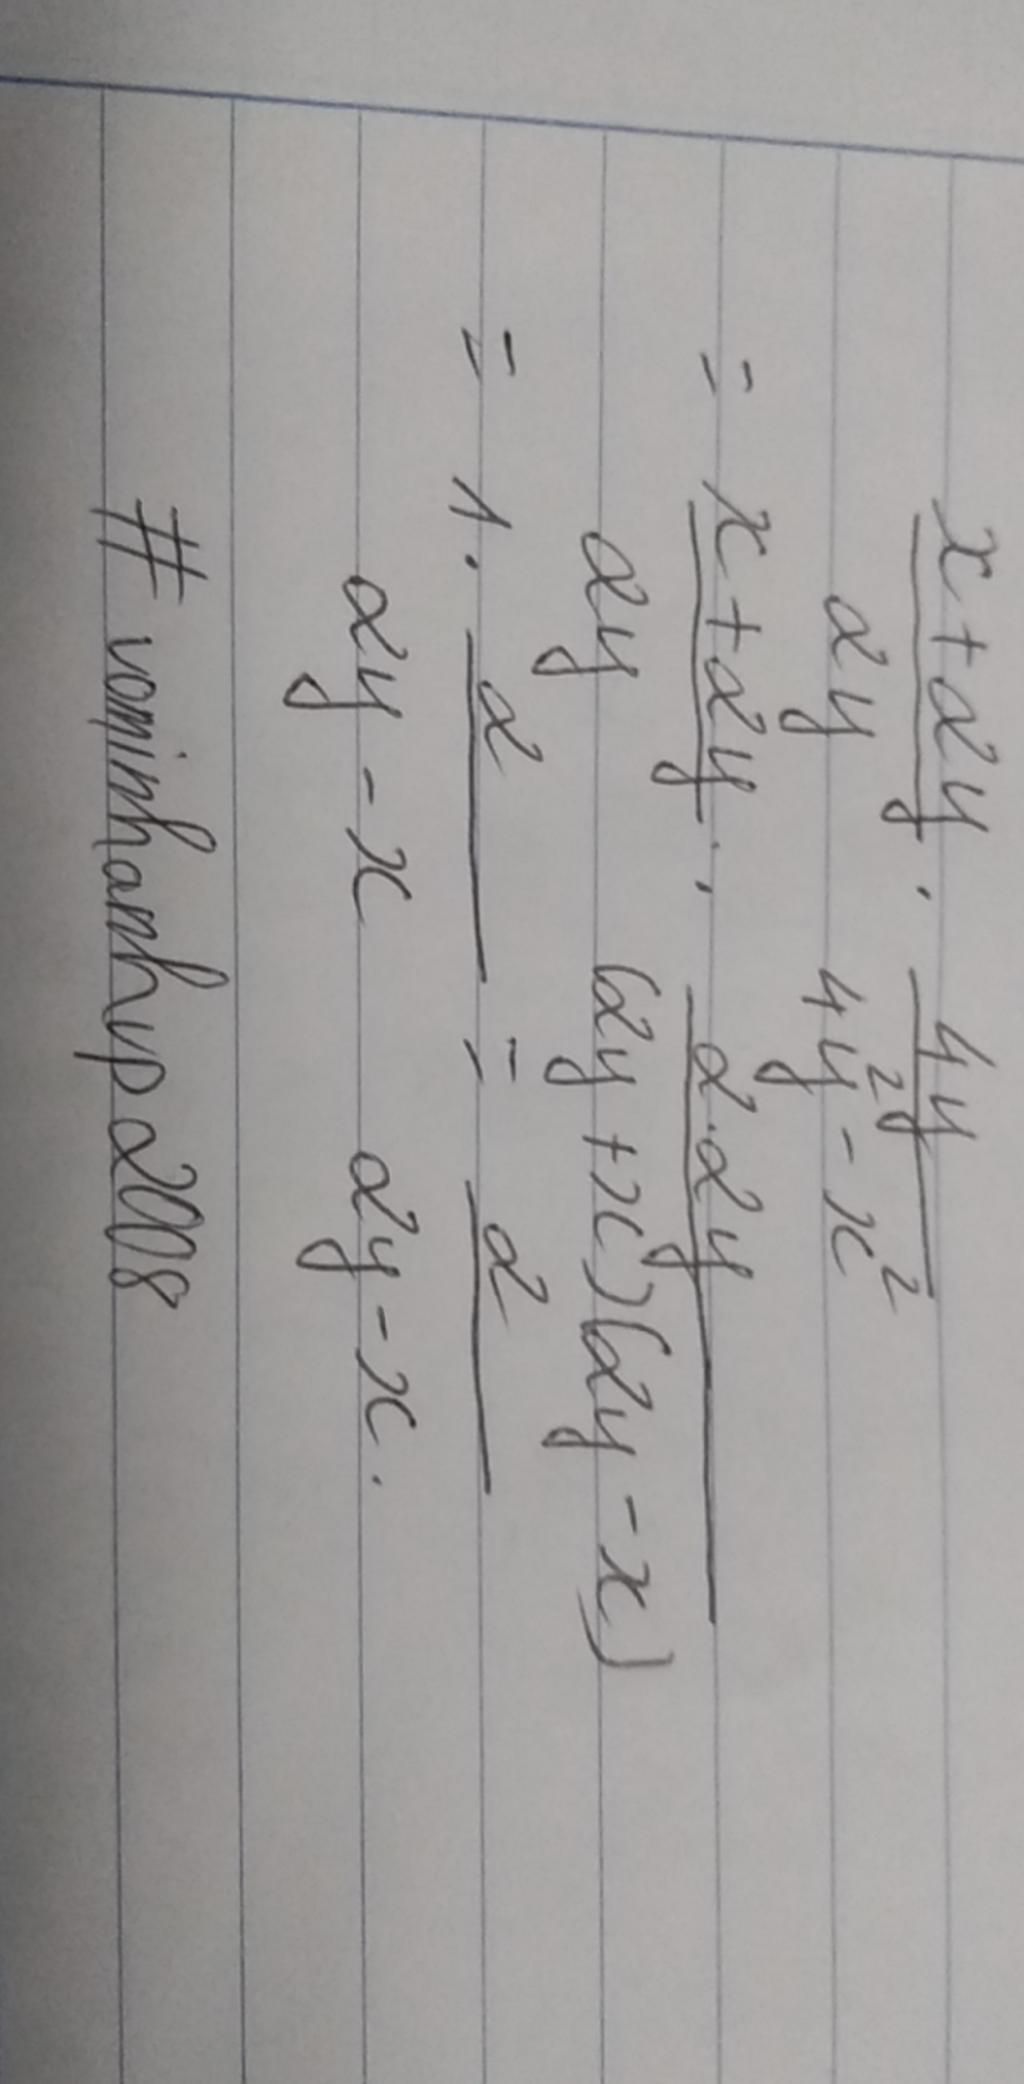 x+2y . 4y
2y 4y²-x²
= x+2y . 2.2y
2y (2y+x)(2y-x)
= 1. 2 = 2
2y-x 2y-x.
# vominhanhvp2008